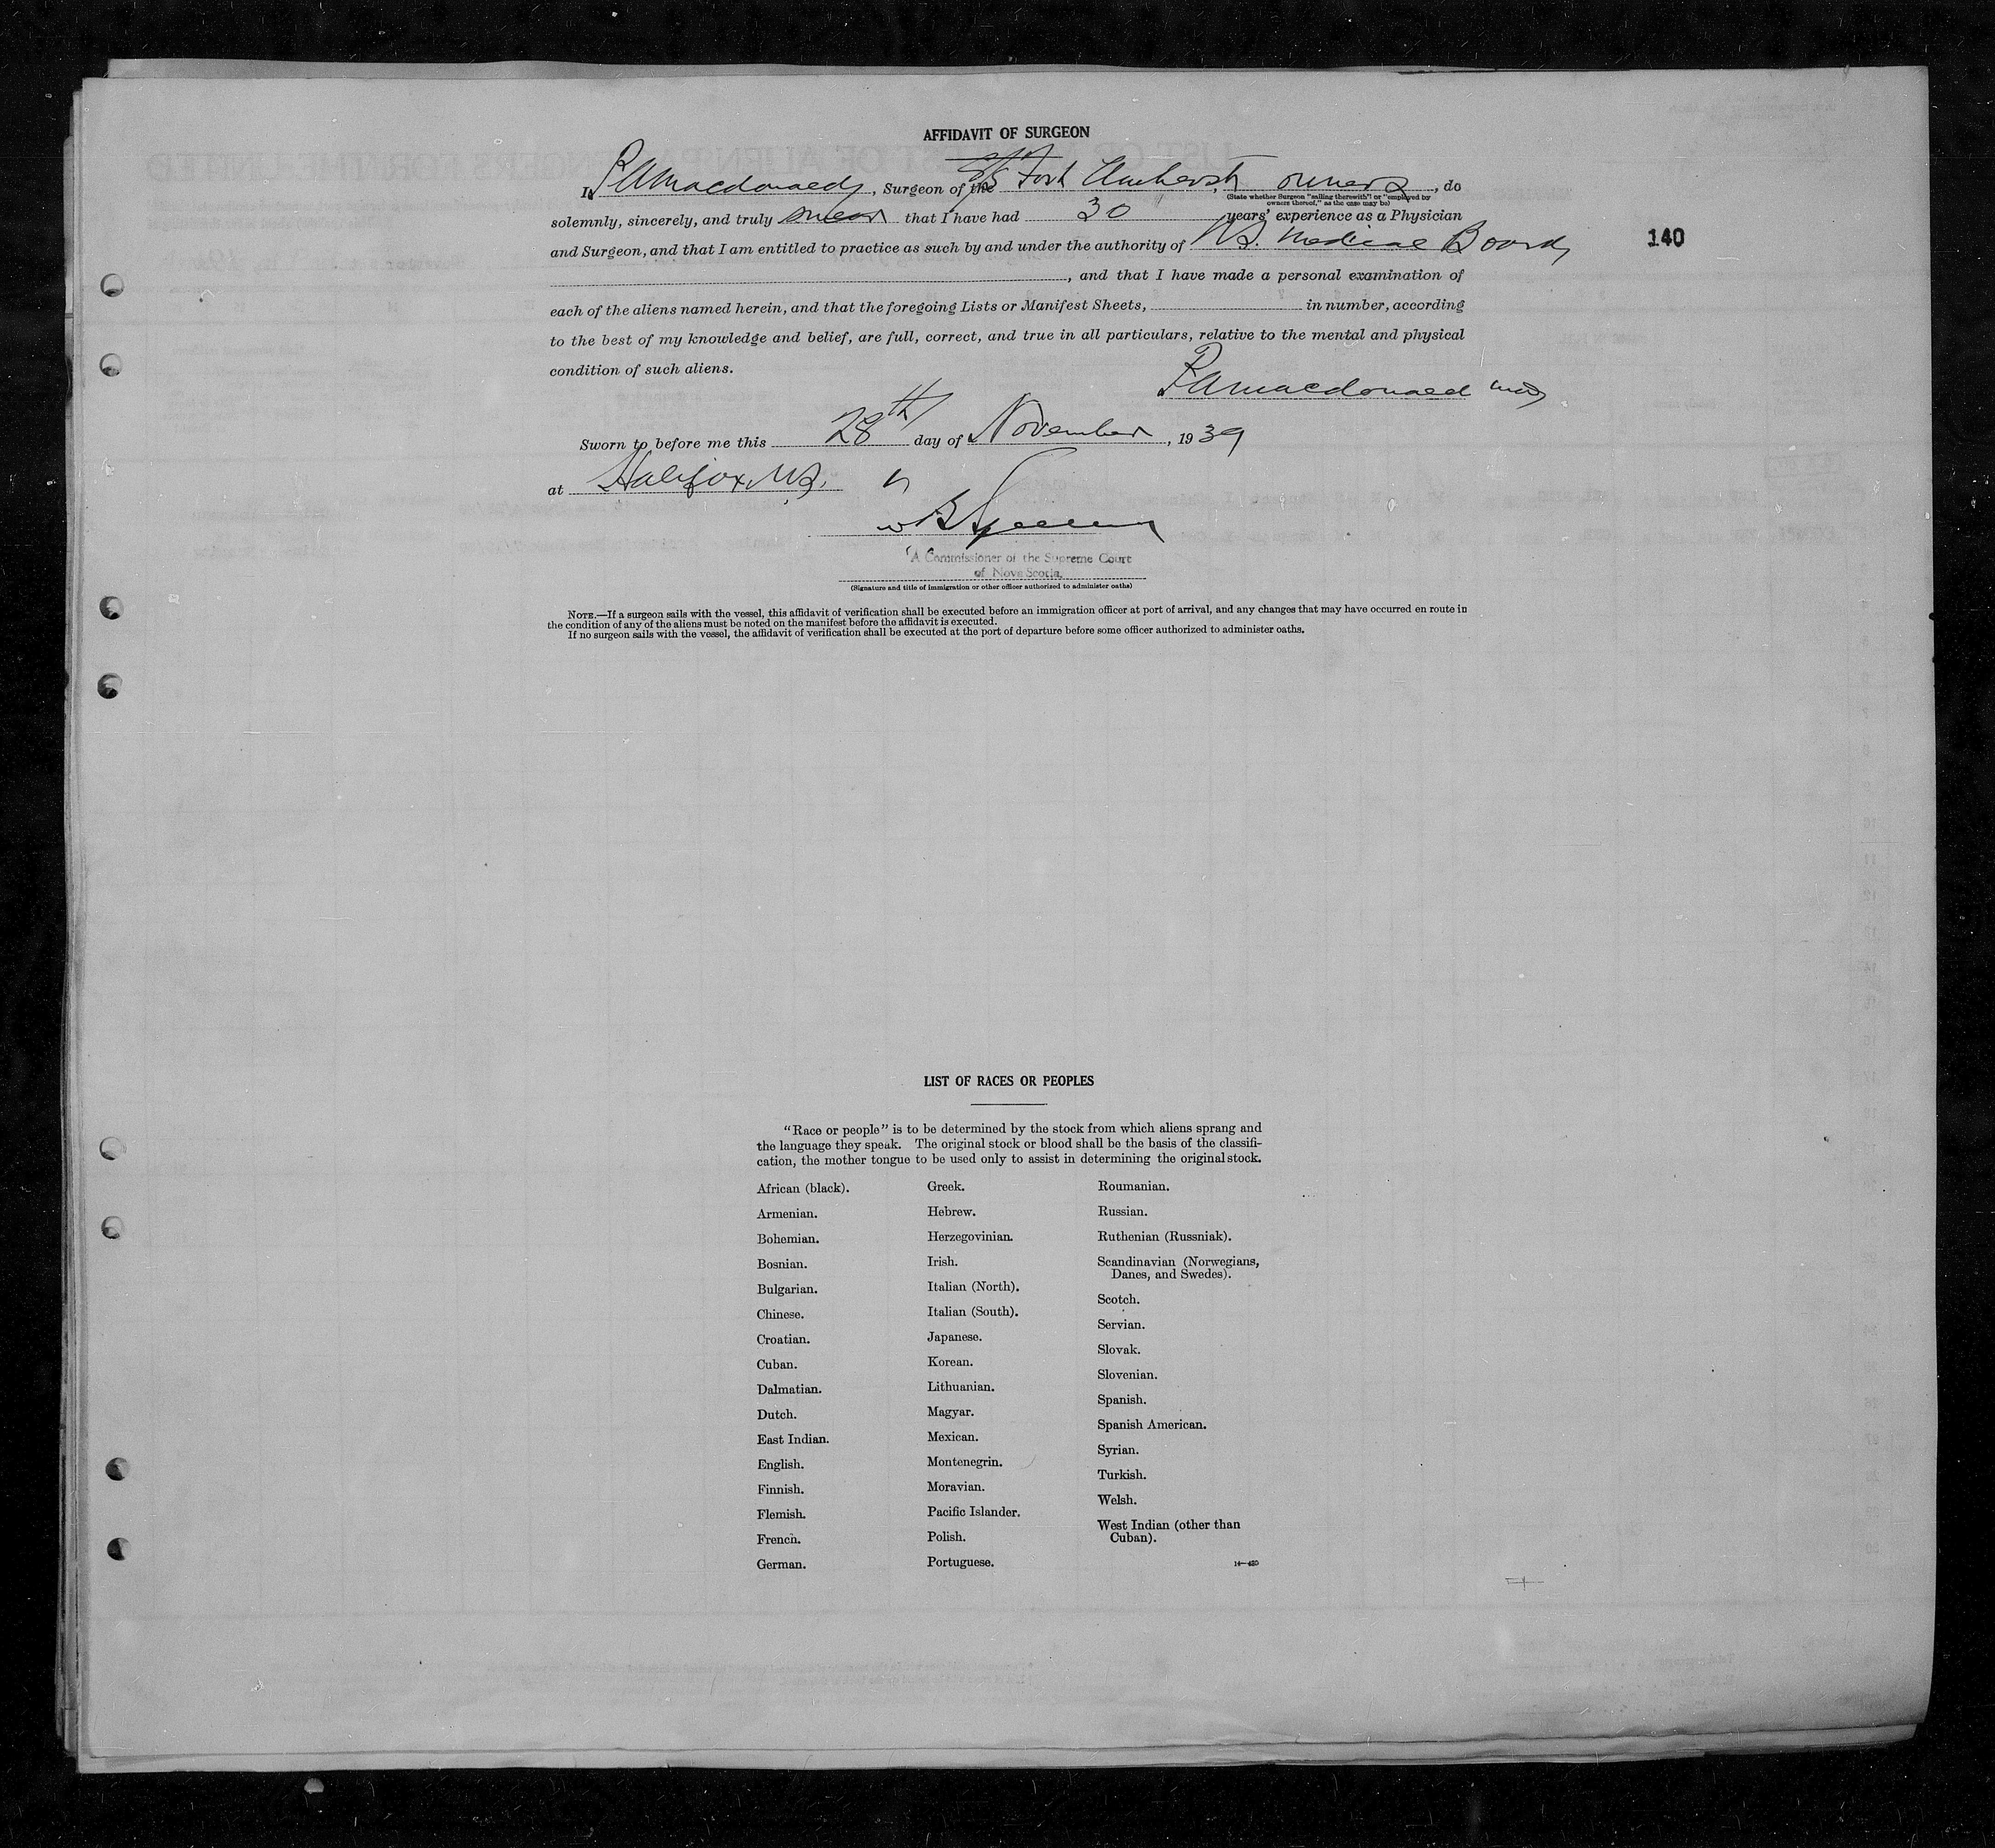 AFFIDAVIT OF SURGEON
I, P A Macdonald, Surgeon of the S/S Fort Amherst, owners, do
(State whether Surgeon "sailing therewith" or "employed by
owners thereof," as the case may be)
solemnly, sincerely, and truly swear that I have had 30 years' experience as a Physician
and Surgeon, and that I am entitled to practice as such by and under the authority of N.S. Medical Board,
140
, and that I have made a personal examination of
each of the aliens named herein, and that the foregoing Lists or Manifest Sheets, in number, according
to the best of my knowledge and belief, are full, correct, and true in all particulars, relative to the mental and physical
condition of such aliens.
P A Macdonald MD
Sworn to before me this 28th day of November, 1939
at Halifax, N.S.
"A Commissioner of the Supreme Court
of Nova Scotia,
(Signature and title of immigration or other officer authorized to administer oaths)
NOTE.—If a surgeon sails with the vessel, this affidavit of verification shall be executed before an immigration officer at port of arrival, and any changes that may have occurred en route in
the condition of any of the aliens must be noted on the manifest before the affidavit is executed.
If no surgeon sails with the vessel, the affidavit of verification shall be executed at the port of departure before some officer authorized to administer oaths.
LIST OF RACES OR PEOPLES
"Race or people" is to be determined by the stock from which aliens sprang and
the language they speak. The original stock or blood shall be the basis of the classifi-
cation, the mother tongue to be used only to assist in determining the original stock.
African (black).
Armenian.
Bohemian.
Bosnian.
Bulgarian.
Chinese.
Croatian.
Cuban.
Dalmatian.
Dutch.
East Indian.
English.
Finnish.
Flemish.
French.
German.
Greek.
Hebrew.
Herzegovinian.
Irish.
Italian (North).
Italian (South).
Japanese.
Korean.
Lithuanian.
Magyar.
Mexican.
Montenegrin.
Moravian.
Pacific Islander.
Polish.
Portuguese.
Roumanian.
Russian.
Ruthenian (Russniak).
Scandinavian (Norwegians,
Danes, and Swedes).
Scotch.
Servian.
Slovak.
Slovenian.
Spanish.
Spanish American.
Syrian.
Turkish.
Welsh.
West Indian (other than
Cuban).
14—430